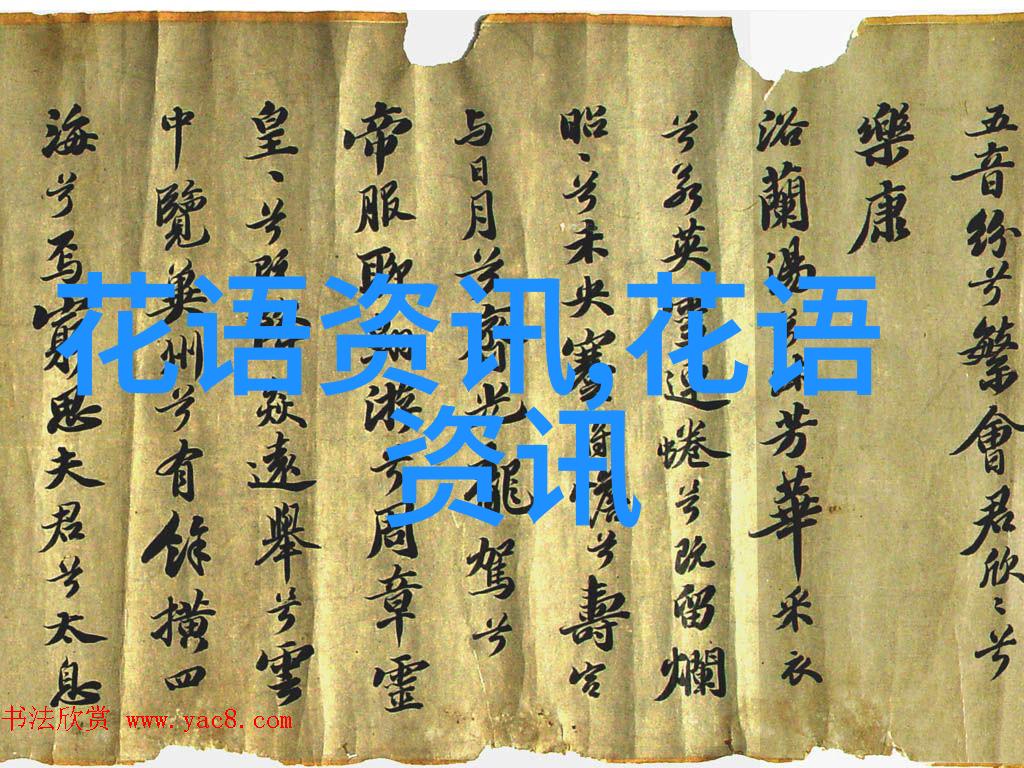 五音纷兮繁會君欣〻兮
樂康
浴蘭湯兮沐芳華采衣
兮若英靈連蜷兮既留爛
昭〻兮未央蹇將憺兮壽宮
与日月兮齊光龍駕兮
帝服聊翱游兮周章靈
皇〻兮既降猋遠舉兮雲
中覽冀州兮有餘横四
海兮焉窮思夫君兮太息
花语资讯,花语
资讯
书法欣赏 www.yac8.com